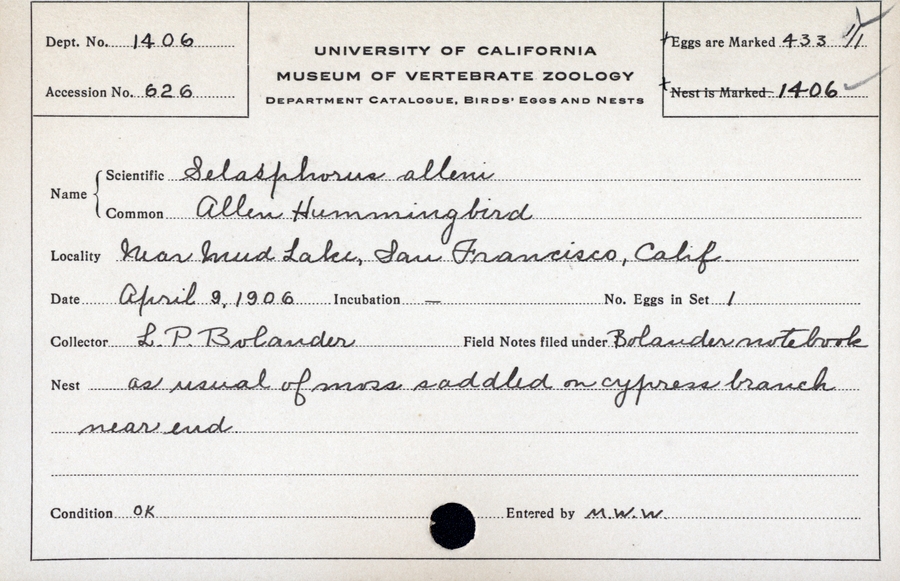 Dept. No. 1406
Accession No. 626
UNIVERSITY OF CALIFORNIA
MUSEUM OF VERTEBRATE ZOOLOGY
DEPARTMENT CATALOGUE, BIRDS' EGGS AND NESTS
Eggs are Marked 433
Nest is Marked 1406
Name
Scientific Selasphorus alleni
Common Allen Hummingbird
Locality Near Mud Lake, San Francisco, Calif.
Date April 9, 1906 Incubation — No. Eggs in Set 1
Collector L. P. Bolander Field Notes filed under Bolander notebook
Nest as usual of moss saddled on cypress branch
near end
Condition OK Entered by M.W.W.